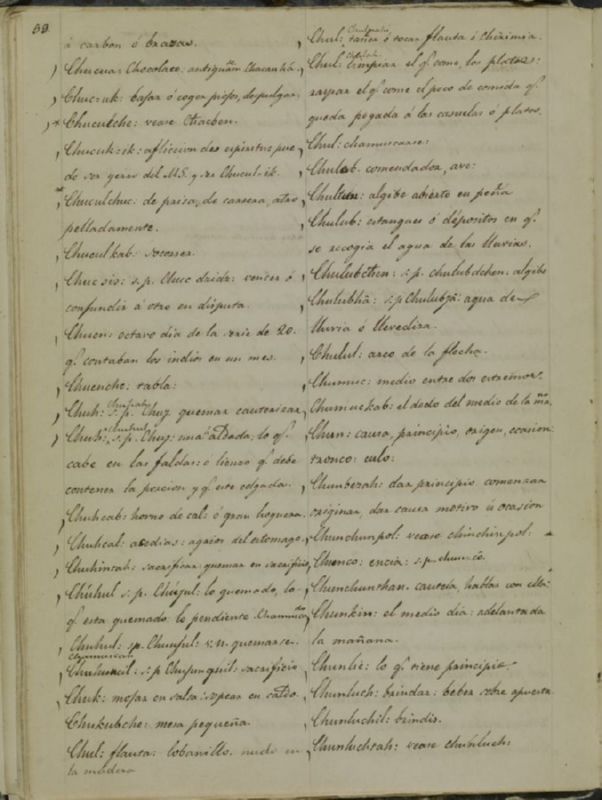 á carbon ó brazas.
Chucua: Chocolate: antiquam Chacauhá.
Chuc-uk: bajar ó coger piojos, de pulgas.
Chucutche: vease Chacben.
Chucuk-ik: afliccion de espiritu: pue-
de ser yerro del M.S. y ser Chucul-ik.
Chuculchuc: de prisa, de carrera, atro-
pelladamente.
Chuculkab: socorrer.
Chuc sis: s.p. Chuc dzidz: vencer ó
confundir á otro en disputa.
Chuen: octavo dia de la serie de 20.
qe. contaban los indios en un mes.
Chuenche: tabla:
Chuh: s.p. Chuy quemar cauterizar,
Chuh: s.p. Chuy: una aldada, lo qe.
cabe en las faldas: ó lienzo qe. debe
contener la porcion y qe. este colgada.
Chuhcab: horno de cal: ó gran hoguera.
Chuhcal: acedias: agrios del estomago.
Chuhintah: sacrificar quemar en sacrificio
Chúhul s.p. Chúyul: lo quemado, lo
qe. esta quemado lo pendiente. Chamuscado
Chuhul: sp. Chuyul: v.n. quemarse.
chamuscar
s.p. sacrificio
Chuk: mojar en salsa: sopear en caldo.
Chukubche: mesa pequeña.
Chul: flauta: lobanillo. nudo en
la madera
Chul: tañer ó tocar flauta ó chirimia.
Chul: limpiar el qe. come, los platos:
raspar el qe. come el poco de comida qe.
queda pegada á las casuelas ó platos.
Chul: chamuscarse:
Chulub. comendador, ave:
Chultun: algibe abierto en peña
Chulub: estanques ó dépositos en qe.
se recogia el agua de las lluvias.
Chulubchen: s.p. chulubdchen: algibe
Chulubhá: s.p Chulubjá: agua de
lluvia ó llovediza.
Chulul: arco de la flecha.
Chumuc: medio entre dos estremos.
Chumuckab: el dedo del medio de la mano.
Chun: causa, principio, origen, ocasion
tronco: culo:
Chunbezah: dar principio comenzar
originar, dar causa motivo ú ocasion
Chunchunpol: vease chinchinpol.
Chunco: encia: s.p. chun-co.
Chunchunthan. cautela, hablar con ella
Chunkin: el medio dia: adelantada
la mañana.
Chunlic: lo qe. tiene principio
Chunluch: brindar: beber sobre apuesta
Chunluchil: brindis.
Chunluchtah: vease chunluch: